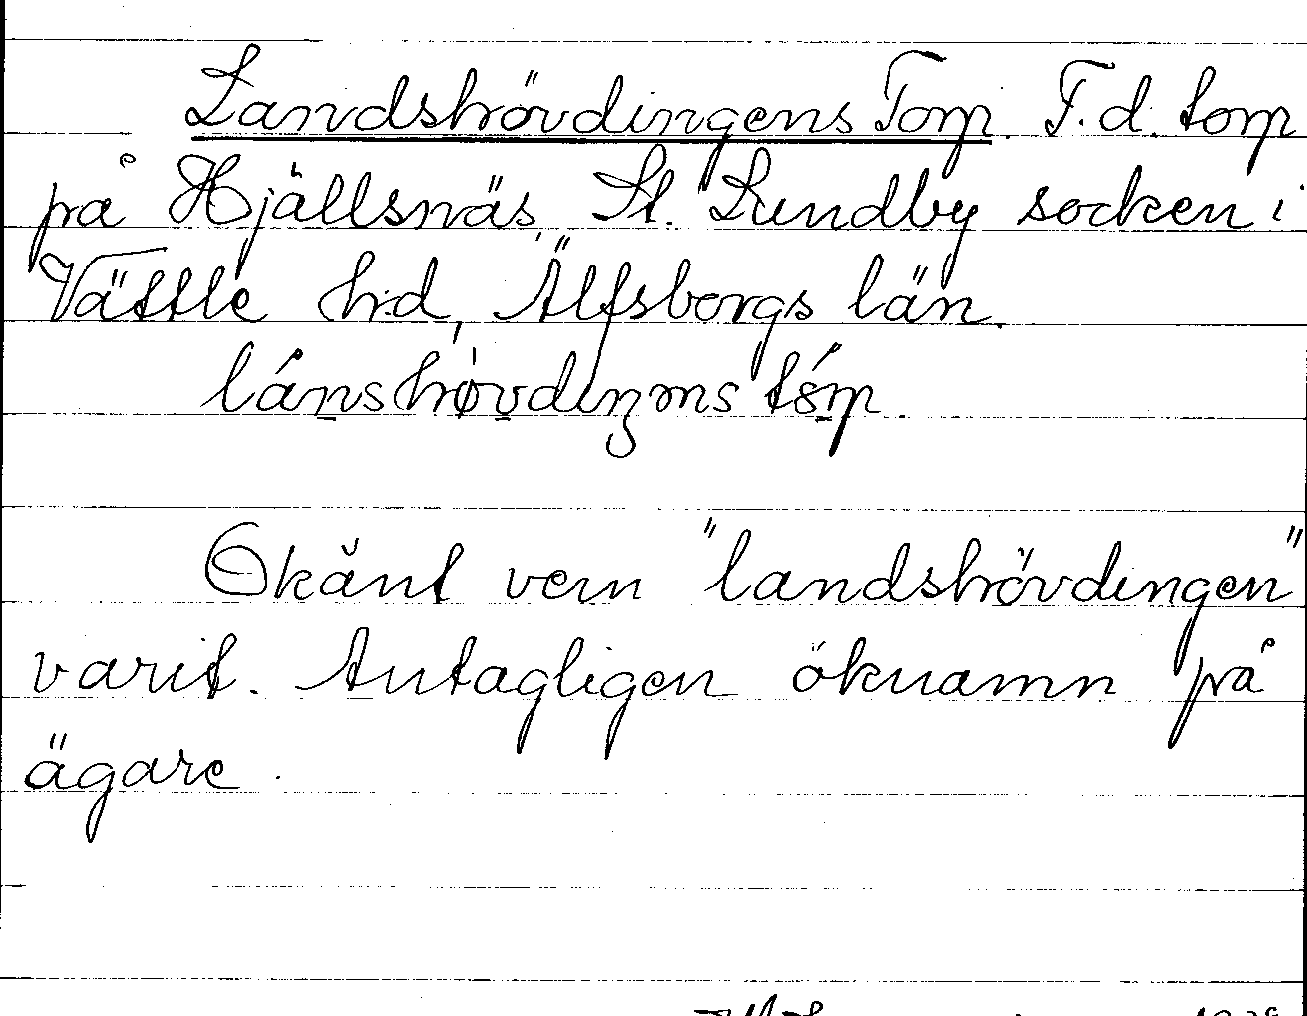 Landshövdingens Torp. F.d. torp
på Hjällsnäs, St. Lundby socken i
Vättle hd, Älfsborgs län.
Okänt vem "landshövdingen"
varit. Antagligen öknamn på
ägare.